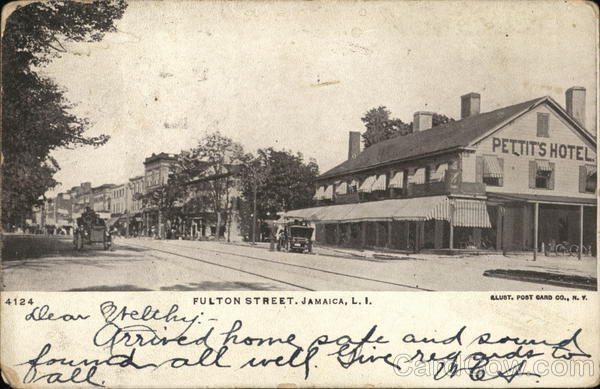 PETTIT'S HOTEL.
4124 FULTON STREET. JAMAICA, L. I. ILLUST. POST CARD CO., N. Y.
Dear Welthy:-
Arrived home safe and sound
found all well. Give regards to
all. W.E.S.
CardCow.com